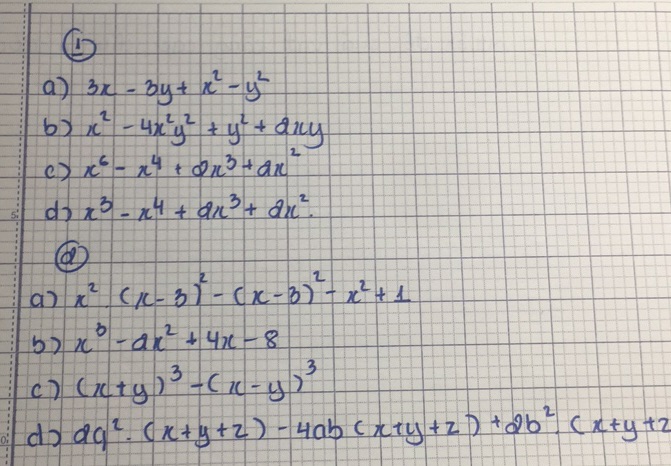 1
a) 3x - 3y + x² - y²
b) x² - 4x²y² + y² + 2xy
c) x⁶ - x⁴ + 2x³ + 2x²
d) x³ - x⁴ + 2x³ + 2x².
2
a) x². (x - 3)² - (x - 3)² - x² + 1
b) x³ - 2x² + 4x - 8
c) (x+y)³ - (x - y)³
d) 2a². (x + y + z) - 4ab (x + y + z) + 2b². (x + y + z